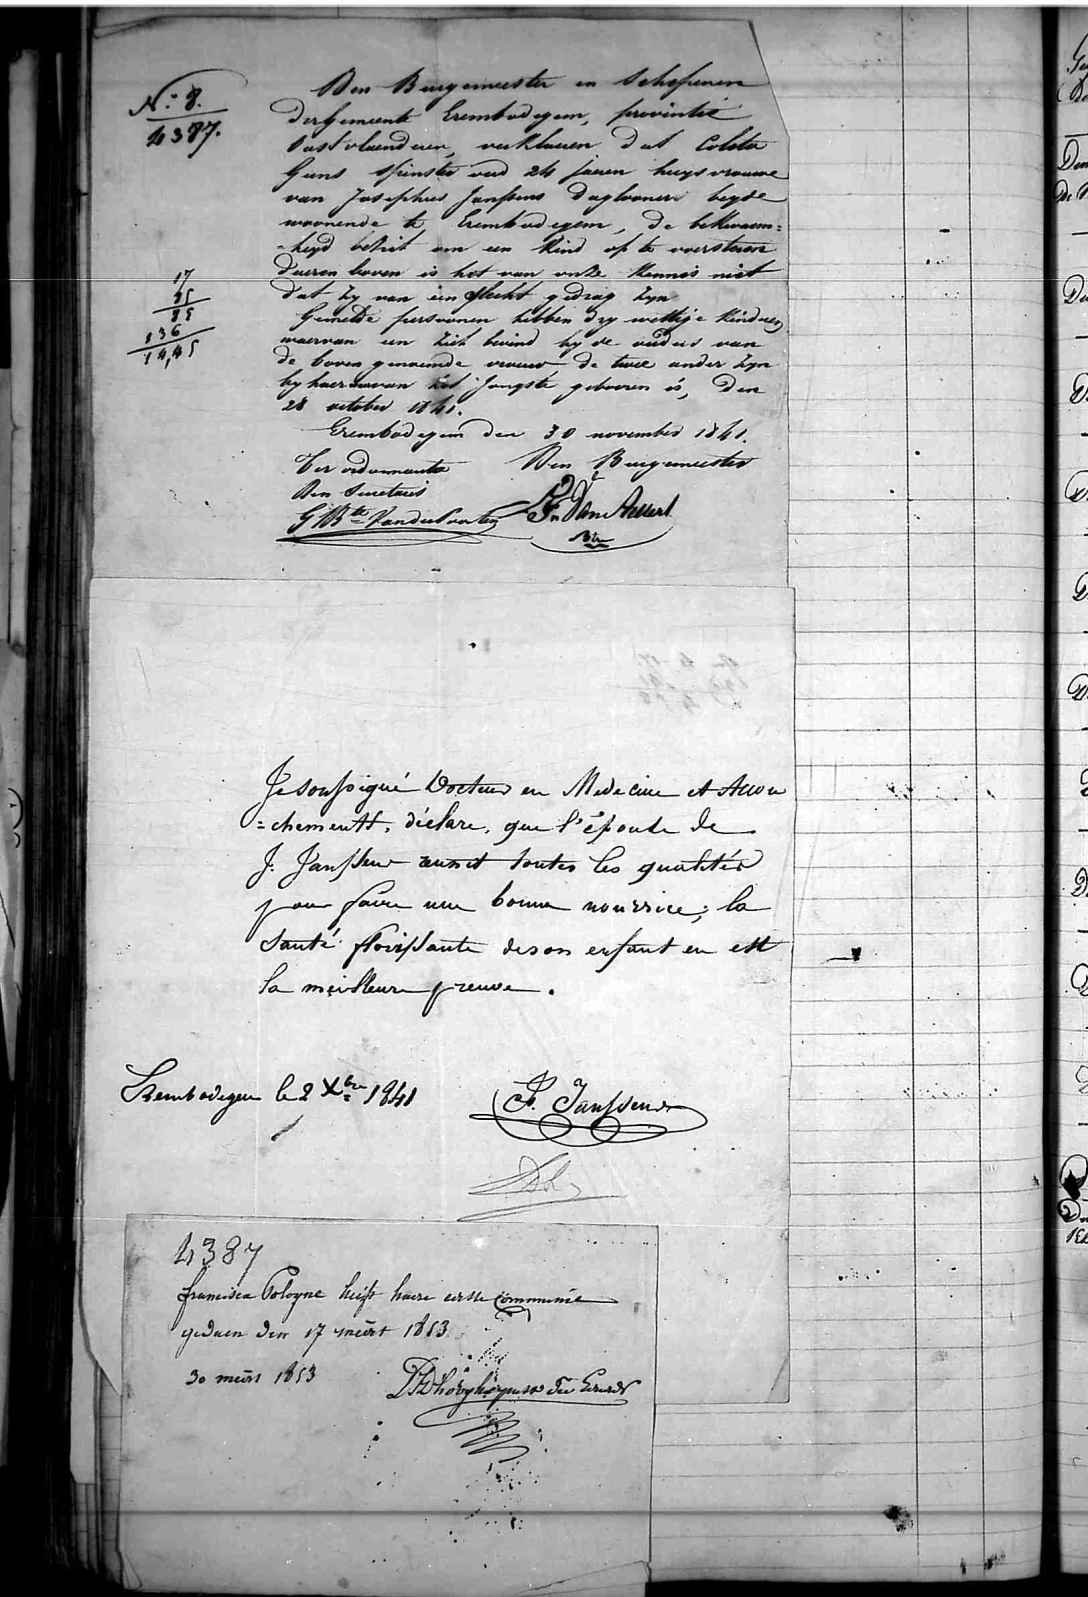 N.° 8.
4387.
Den Burgemeester en Schepenen
der gemeente Erembodegem, provintie
Oostvlaenderen, verklaeren dat Coleta
Guns spinster oud 24 jaeren huysvrouwe
van Josephus Janssens daglooner beyde
woonende te Erembodegem, de bekwaem=
=heyd bezit om een kind op te voersteren
daeren boven is het van onze kennis niet
dat zy van een slecht gedrag zyn
Gemelde persoonen hebben dry wettige kinderen
waervan een zich bevind by de ouders van
de bovengenoemde vrouw de twee ander zyn
by haer waervan het jongste geboren is, den
28 october 1841.
Erembodegem den 30 november 1841.
Ter ordonnantie Den Burgemeester
Den Secretaris
17
85
85
136
14,45
Je soussigné Docteur en Medecine et Accou
=chements, déclare, que l'épouse de
J. Janssens reunit toutes les qualités
pour faire une bonne nourrice; la
santé florissante de son enfant en est
la meilleure preuve.
Erembodegem le 2 Xbre 1841
F. Janssens
4387
francisca Pologne heeft haere eerste communie
gedaen den 17 meert 1853
30 meert 1853